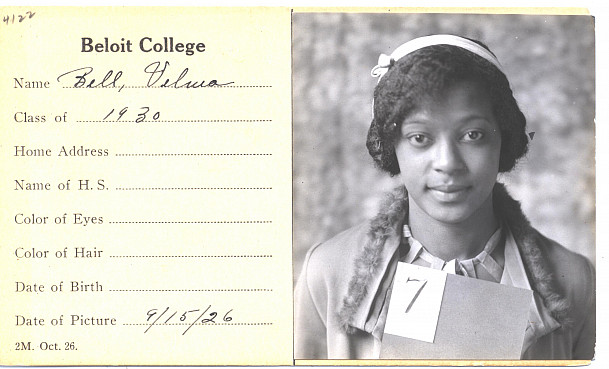 4122
Beloit College
Name Bell, Velma
Class of 1930
Home Address
Name of H. S.
Color of Eyes
Color of Hair
Date of Birth
Date of Picture 9/15/26
2M. Oct. 26.
7